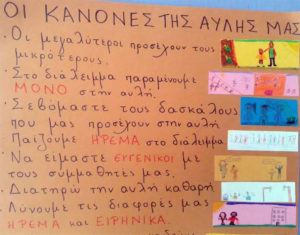 ΟΙ ΚΑΝΟΝΕΣ ΤΗΣ ΑΥΛΗΣ ΜΑΣ
· Οι μεγαλύτεροι προσέχουν τους
μικρότερους.
· Στο διάλειμμα παραμένουμε
ΜΟΝΟ στην αυλή.
· Σεβόμαστε τους δασκάλους
που μας προσέχουν στην αυλή
· Παίζουμε ΗΡΕΜΑ στο διάλειμμα
· Να είμαστε ΕΥΓΕΝΙΚΟΙ με
τους συμμαθητές μας.
· Διατηρώ την αυλή καθαρή
· Λύνουμε τις διαφορές μας
ΗΡΕΜΑ και ΕΙΡΗΝΙΚΑ.